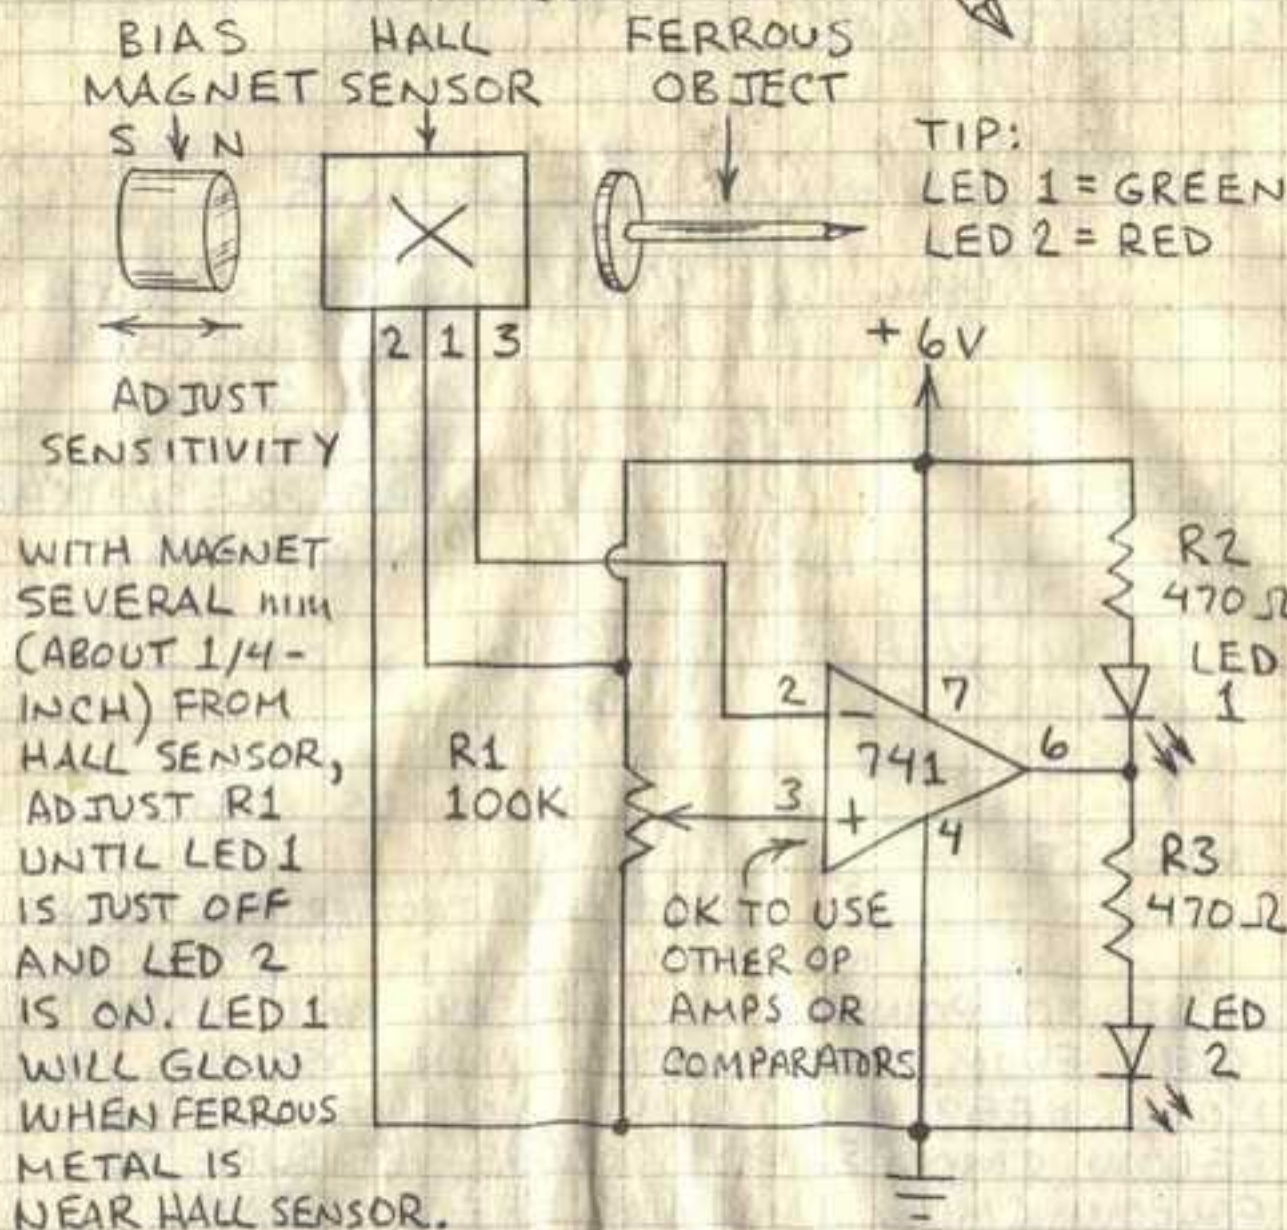 BIAS
MAGNET
HALL
SENSOR
FERROUS
OBJECT
S N
TIP:
LED 1 = GREEN
LED 2 = RED
2 1 3
ADJUST
SENSITIVITY
+6V
WITH MAGNET
SEVERAL mm
(ABOUT 1/4-
INCH) FROM
HALL SENSOR,
ADJUST R1
UNTIL LED 1
IS JUST OFF
AND LED 2
IS ON. LED 1
WILL GLOW
WHEN FERROUS
METAL IS
NEAR HALL SENSOR.
R1
100K
2
-
7
741
6
3
+
4
OK TO USE
OTHER OP
AMPS OR
COMPARATORS
R2
470Ω
LED
1
R3
470Ω
LED
2